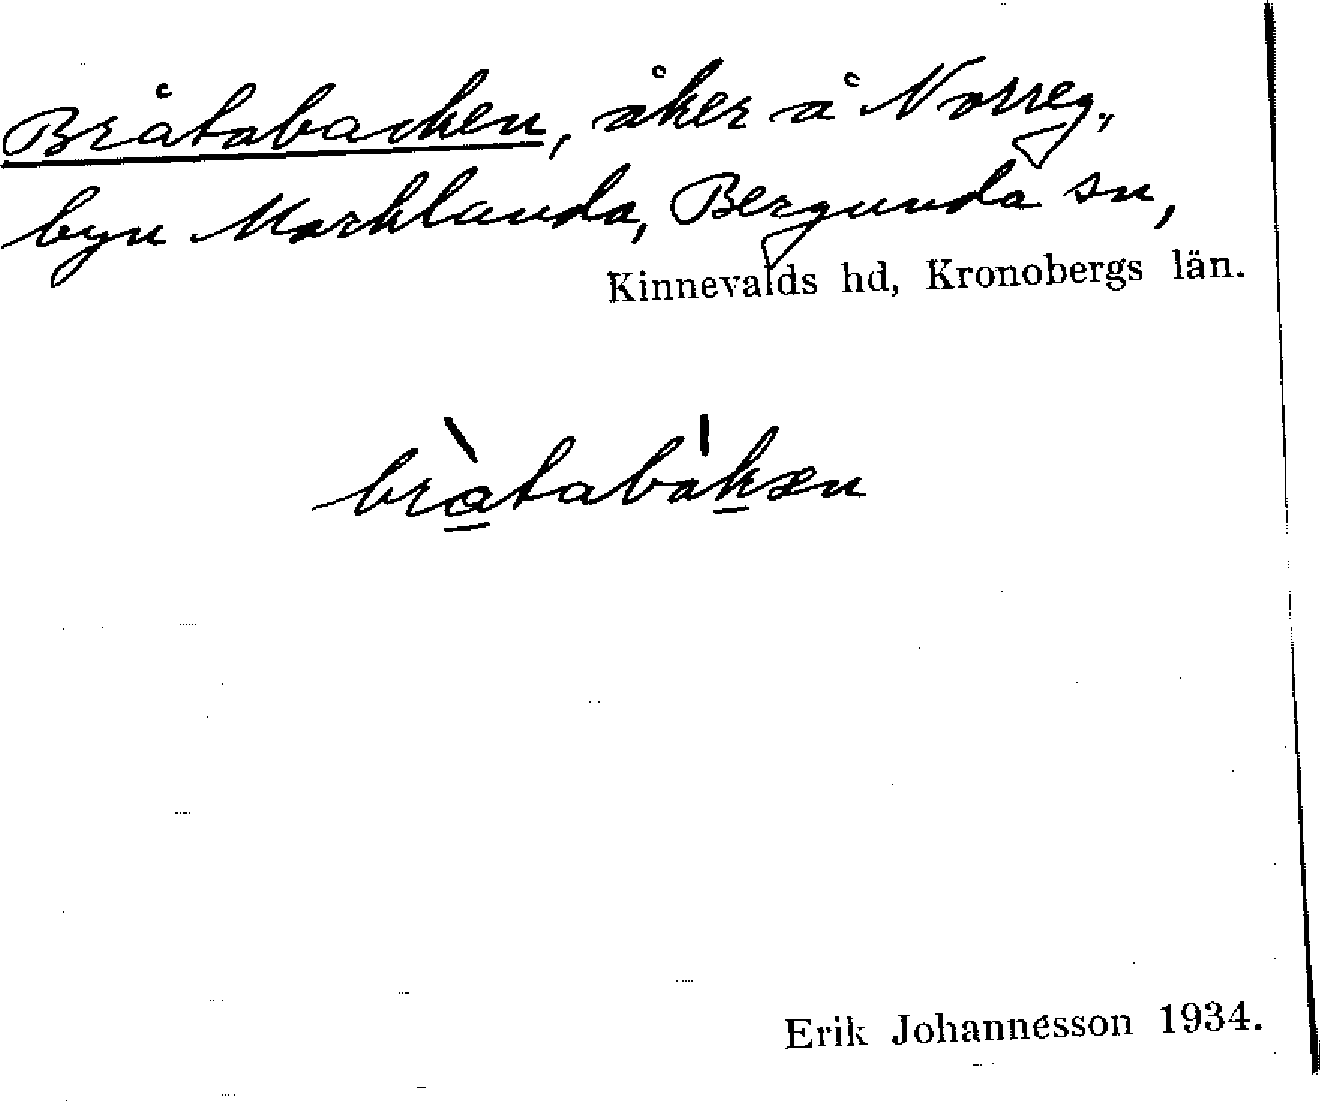 Bråtabacken, åker å Norreg.,
byn Marklanda, Bergunda sn,
Kinnevalds hd, Kronobergs län.
bràtabakæn
Erik Johannesson 1934.